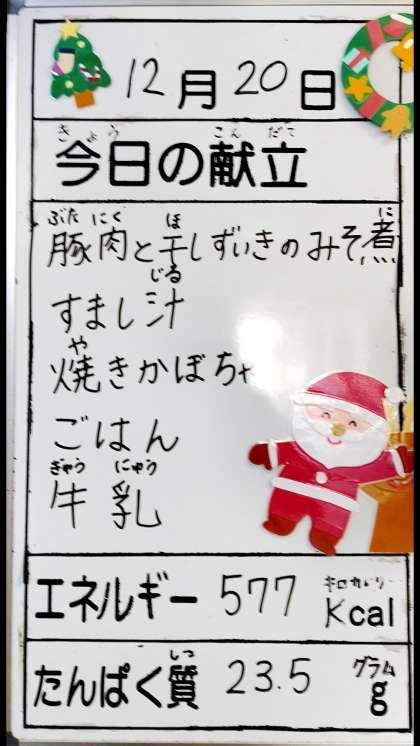 12月20日
きょう こんだて
今日の献立
ぶたにく ほ に
豚肉と干しずいきのみそ煮
じる
すまし汁
や
焼きかぼちゃ
ごはん
ぎゅう にゅう
牛乳
キロカロリー
エネルギー 577 Kcal
しつ グラム
たんぱく質 23.5 g